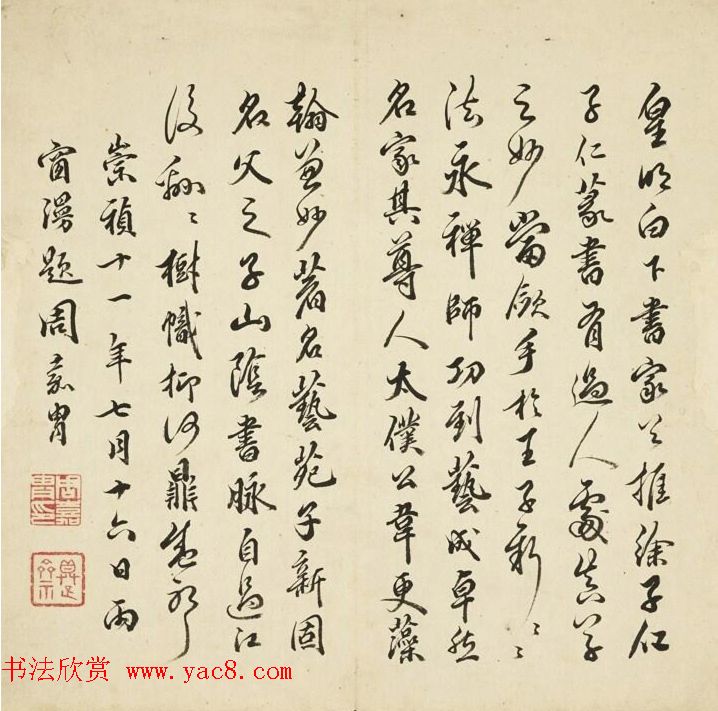 皇明白下書家公推徐子仁
子仁篆書有過人處真草
之妙當斂手於王子新〻〻
法永禪師功到藝成卓然
名家其尊人太僕公韋更藻
翰妙著名藝苑子新固
名父之子山陰書脈自過江
後翩〻樹幟抑何鼎盛耶
崇禎十一年七月十六日雨
窗漫題周嘉胄
周嘉胄印
书法欣赏 www.yac8.com